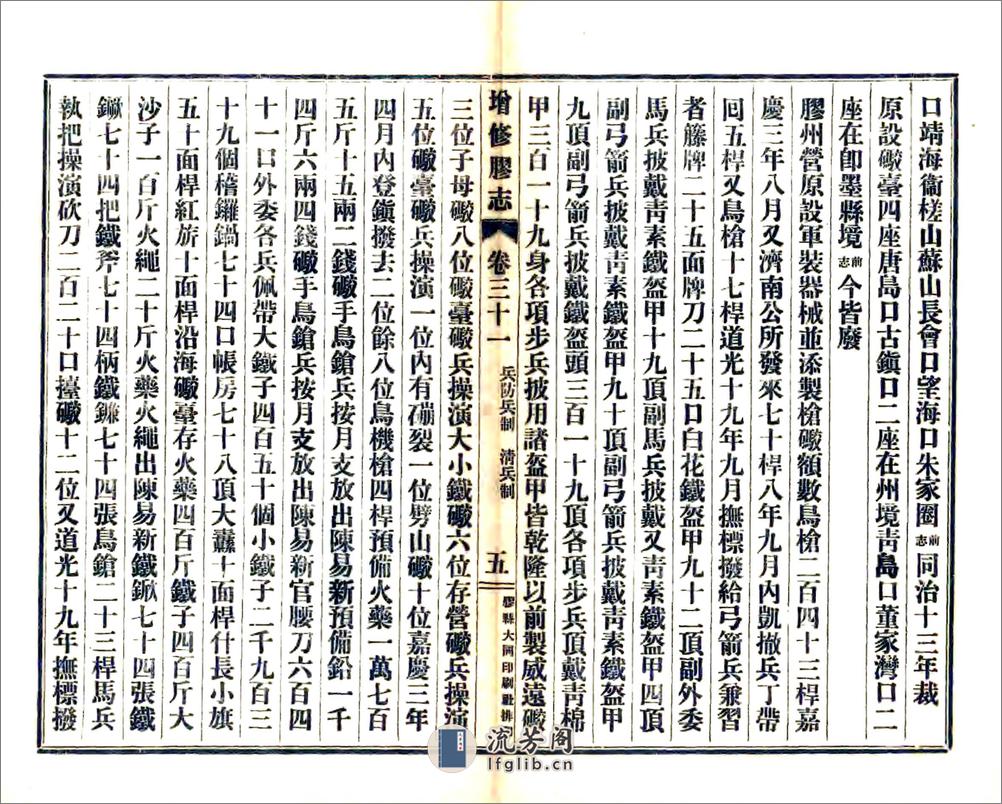 口靖海衞槎山蘇山長會口望海口朱家圈前志同治十三年裁
原設礮臺四座唐島口古鎭口二座在州境靑島口董家灣口二
座在卽墨縣境前志今皆廢
膠州營原設軍裝器械並添製槍礮額數鳥槍二百四十三桿嘉
慶三年八月又濟南公所發來七十桿八年九月內凱撤兵丁帶
囘五桿又鳥槍十七桿道光十九年九月撫標撥給弓箭兵兼習
者籐牌二十五面牌刀二十五口白花鐵盔甲九十二頂副外委
馬兵披戴靑素鐵盔甲十九頂副馬兵披戴又靑素鐵盔甲四頂
副弓箭兵披戴靑素鐵盔甲九十頂副弓箭兵披戴靑素鐵盔甲
九頂副弓箭兵披戴鐵盔頭三百一十九頂各項步兵頂戴靑棉
甲三百一十九身各項步兵披用諸盔甲皆乾隆以前製威遠礮
增修膠志 卷三十一 兵防兵制 淸兵制 五 膠縣大同印刷社排印
三位子母礮八位礮臺礮兵操演大小鐵礮六位存營礮兵操演
五位礮臺礮兵操演一位內有磞裂一位劈山礮十位嘉慶三年
四月內登鎭撥去二位餘八位鳥機槍四桿預備火藥一萬七百
五斤十五兩二錢礮手鳥鎗兵按月支放出陳易新預備鉛一千
四斤六兩四錢礮手鳥鎗兵按月支放出陳易新官腰刀六百四
十一口外委各兵佩帶大鐵子四百五十個小鐵子二千九百三
十九個稽鑼鍋七十四口帳房七十八頂大纛十面桿什長小旗
五十面桿紅旂十面桿沿海礮臺存火藥四百斤鐵子四百斤大
沙子一百斤火繩二十斤火藥火繩出陳易新鐵鍁七十四張鐵
鐝七十四把鐵斧七十四柄鐵鐮七十四張鳥鎗二十三桿馬兵
執把操演砍刀二百二十口擡礮十二位又道光十九年撫標撥
流芳阁
lfglib.cn